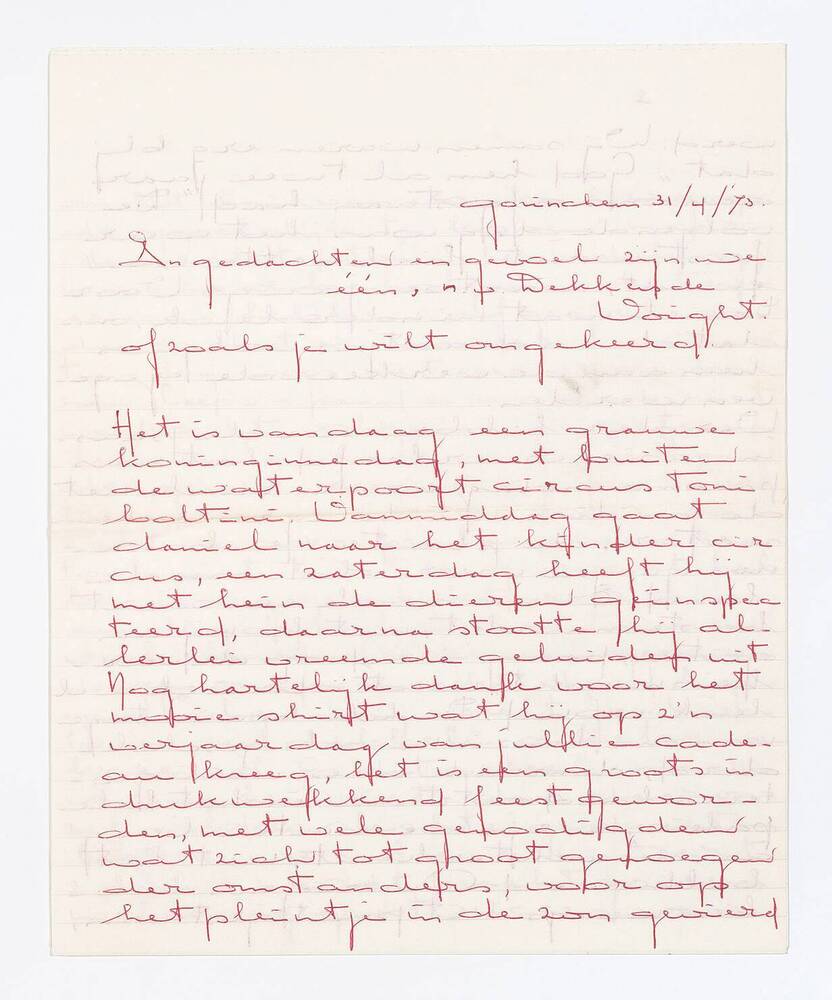 gorinchem 31/4/'73.
In gedachten en gevoel zijn we
één, n v Dekker de
Voight.
of zoals je wilt omgekeerd.
Het is vandaag een grauwe
koninginnedag, met buiten
de waterpoort circus Toni
boltini. Vanmiddag gaat
daniel naar het kinder cir
cus, een zaterdag heeft hij
met hein de dieren geïnspec
teerd, daarna stootte hij al-
lerlei vreemde geluiden uit
Nog hartelijk dank voor het
mooie shirt wat hij op z'n
verjaardag van jullie cade-
au kreeg, het is een groots in
drukwekkend feest gewor-
den, met vele genodigden
wat zich tot groot genoegen
der omstanders, voor op
het pleintje in de zon gevierd